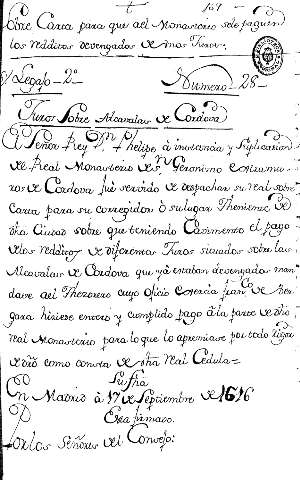 Sobre Carta para que a el Monasterio se le paguen
los redditos devengados de unos Juros.
Legajo 2º Numero 28
Juros Sobre Alcavalas de Cordova
El Señor Rey Dn Phelipe á instancia y Suplicacion
del Real Monasterio de Sn Geronimo extramu
ros de Cordova fue servido de despachar su Real sobre
Carta para su corregidor ó su lugar Theniente de
dha Ciudad sobre que teniendo Cavimento el pago
de los redditos de diferentes Juros situados sobre las
Alcavalas de Cordova que ya estaban devengados man
dase a el Thesorero cuyo oficio exercia Franco de Ver
gara hiciese entero y cumplido pago á la parte de dho
real Monasterio para lo que lo apremiase por todo rigor
de dro como consta de dha Real Cedula=
Su fha
En Madrid à 17 de Septiembre de 1616
Esta firmada
Por los Señores del Consejo: